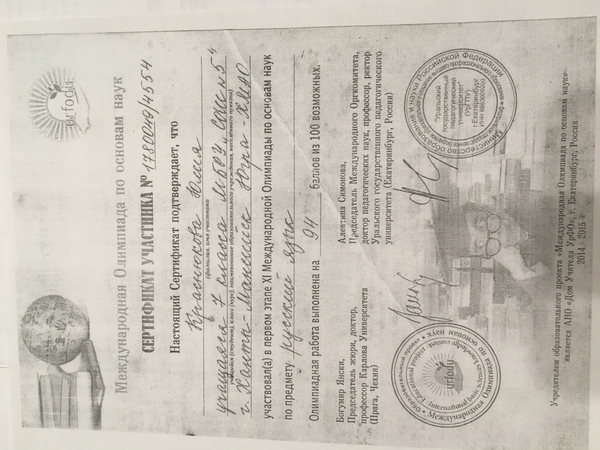 urfodu
Международная Олимпиада по основам наук
СЕРТИФИКАТ УЧАСТНИКА №
Настоящий Сертификат подтверждает, что
Юлия
(фамилия, имя участника)
учащаяся 7 класса МБОУ СОШ №5
г. Ханты-Мансийск Югра-ХМАО
участвовал(а) в первом этапе XI Международной Олимпиады по основам наук
по предмету русский язык
Олимпиадная работа выполнена на 94 баллов из 100 возможных.
Богумир Янски,
Председатель жюри, доктор,
профессор Карлова Университета
(Прага, Чехия)
Алевтина Симонова,
Председатель Международного Оргкомитета,
доктор педагогических наук, профессор, ректор
Уральского государственного педагогического
университета (Екатеринбург, Россия)
urfodu
Международная Олимпиада по основам наук
"Уральский
государственный
педагогический
университет"
(УрГПУ)
г.Екатеринбург
Учредителем образовательного проекта «Международная Олимпиада по основам наук»
является АНО «Дом Учителя УрФО», г. Екатеринбург, Россия
2014 - 2015 г.